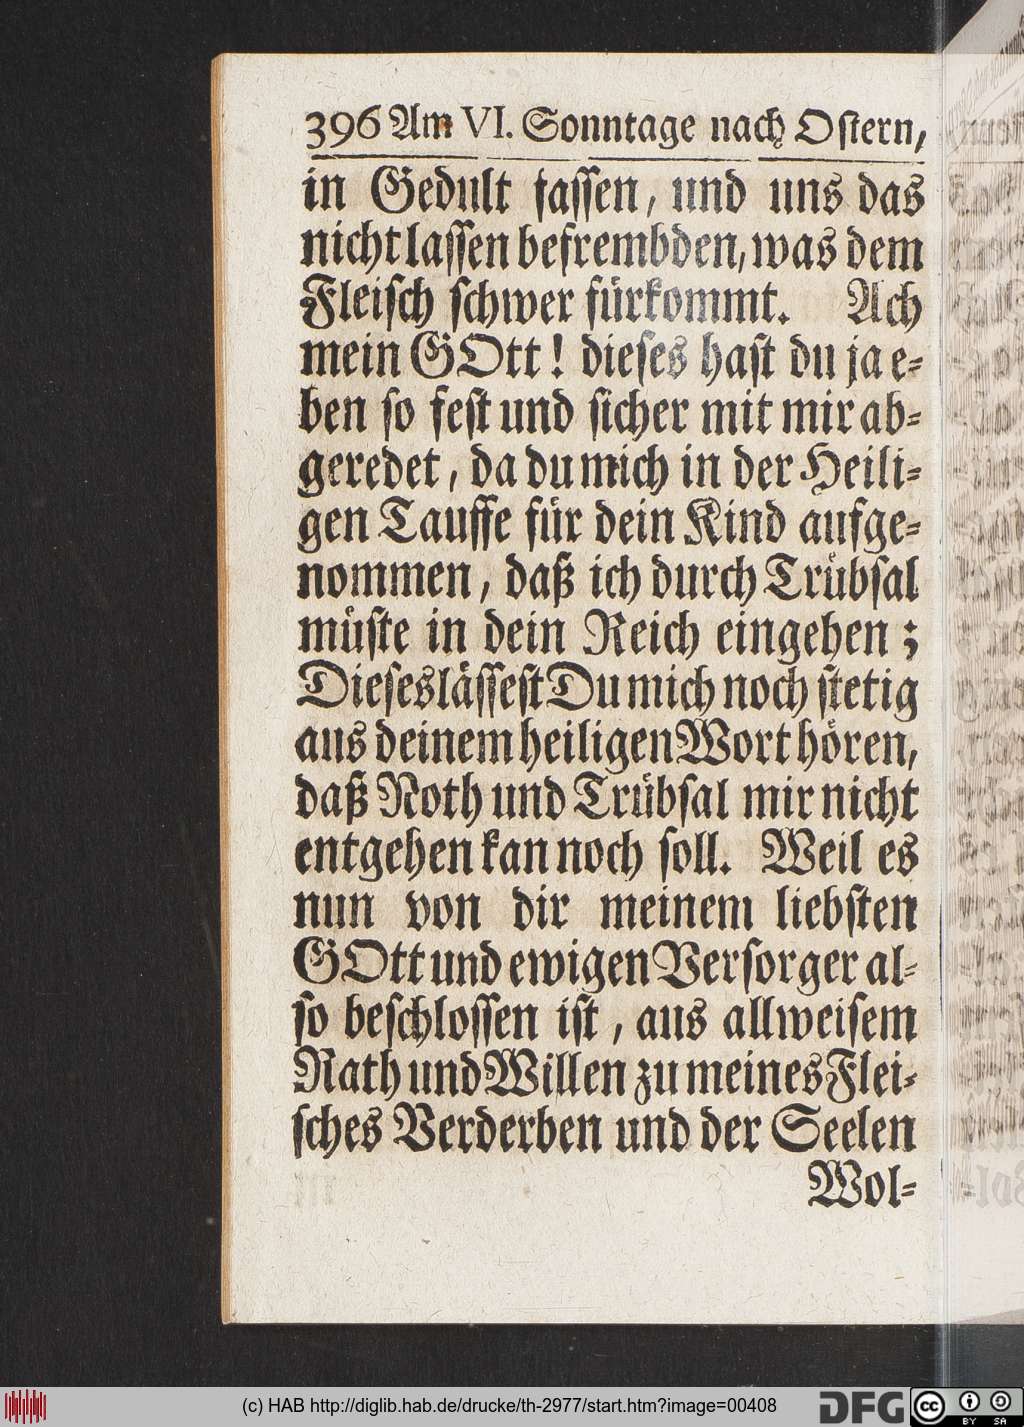 396 Am VI. Sonntage nach Ostern,
in Gedult fassen, und uns das
nicht lassen befrembden, was dem
Fleisch schwer fürkommt. Ach
mein GOtt! dieses hast du ja e-
ben so fest und sicher mit mir ab-
geredet, da du mich in der Heili-
gen Tauffe für dein Kind aufge-
nommen, daß ich durch Trübsal
müste in dein Reich eingehen;
Dieses lässest Du mich noch stetig
aus deinem heiligen Wort hören,
daß Noth und Trübsal mir nicht
entgehen kan noch soll. Weil es
nun von dir meinem liebsten
GOtt und ewigen Versorger al-
so beschlossen ist, aus allweisem
Rath und Willen zu meines Flei-
sches Verderben und der Seelen
Wol-
(c) HAB http://diglib.hab.de/drucke/th-2977/start.htm?image=00408
DFG
cc BY SA